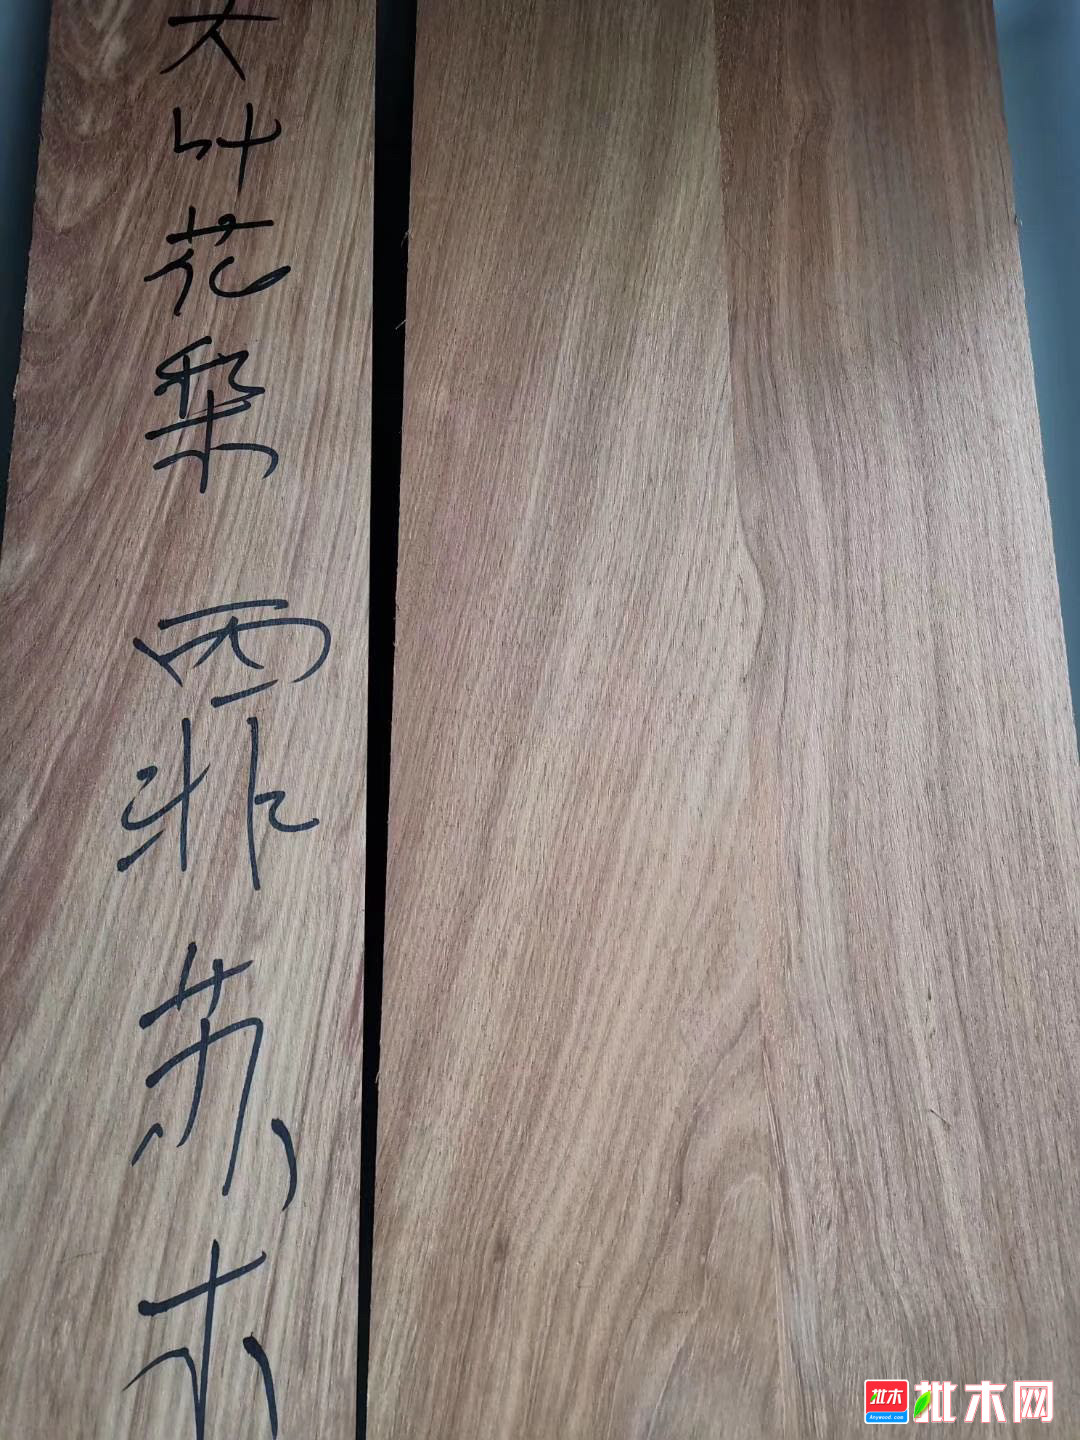 大叶花梨
西非苏木
批木
Anywood.com
批木网